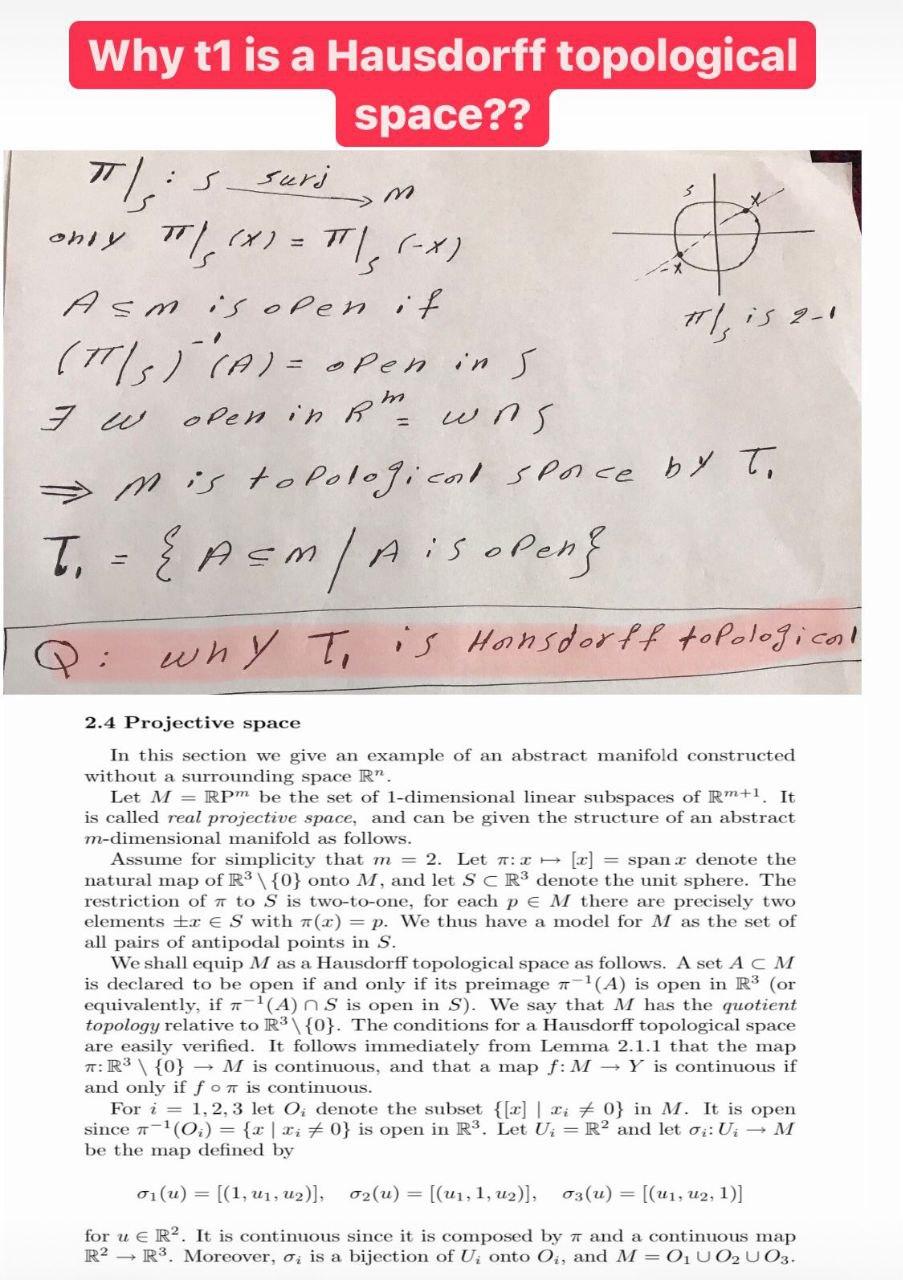 Why t1 is a Hausdorff topological
space??
π/s : S surj→ M
S
x
-x
only π/s (x) = π/s (-x)
A ⊆ M is open if
π/s is 2-1
(π/s)⁻¹(A) = open in S
∃ w open in Rᵐ = w∩S
⇒ M is topological space by T₁
T₁ = { A ⊆ M / A is open}
Q: why T₁ is Hansdorff topological
2.4 Projective space
In this section we give an example of an abstract manifold constructed
without a surrounding space ℝⁿ.
Let M = ℝPᵐ be the set of 1-dimensional linear subspaces of ℝᵐ⁺¹. It
is called real projective space, and can be given the structure of an abstract
m-dimensional manifold as follows.
Assume for simplicity that m = 2. Let π: x ↦ [x] = span x denote the
natural map of ℝ³ \ {0} onto M, and let S ⊂ ℝ³ denote the unit sphere. The
restriction of π to S is two-to-one, for each p ∈ M there are precisely two
elements ±x ∈ S with π(x) = p. We thus have a model for M as the set of
all pairs of antipodal points in S.
We shall equip M as a Hausdorff topological space as follows. A set A ⊂ M
is declared to be open if and only if its preimage π⁻¹(A) is open in ℝ³ (or
equivalently, if π⁻¹(A) ∩ S is open in S). We say that M has the quotient
topology relative to ℝ³ \ {0}. The conditions for a Hausdorff topological space
are easily verified. It follows immediately from Lemma 2.1.1 that the map
π: ℝ³ \ {0} → M is continuous, and that a map f: M → Y is continuous if
and only if f ∘ π is continuous.
For i = 1, 2, 3 let Oᵢ denote the subset {[x] | xᵢ ≠ 0} in M. It is open
since π⁻¹(Oᵢ) = {x | xᵢ ≠ 0} is open in ℝ³. Let Uᵢ = ℝ² and let σᵢ: Uᵢ → M
be the map defined by
σ₁(u) = [(1, u₁, u₂)], σ₂(u) = [(u₁, 1, u₂)], σ₃(u) = [(u₁, u₂, 1)]
for u ∈ ℝ². It is continuous since it is composed by π and a continuous map
ℝ² → ℝ³. Moreover, σᵢ is a bijection of Uᵢ onto Oᵢ, and M = O₁ ∪ O₂ ∪ O₃.